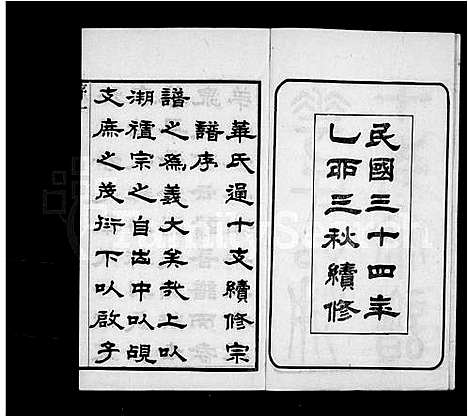 民國三十四年
乙酉三秋續修
華氏通十支續修宗
譜序
譜之為義大矣哉上以
溯禮宗之自出中以覘
支庶之茂衍下以啟子